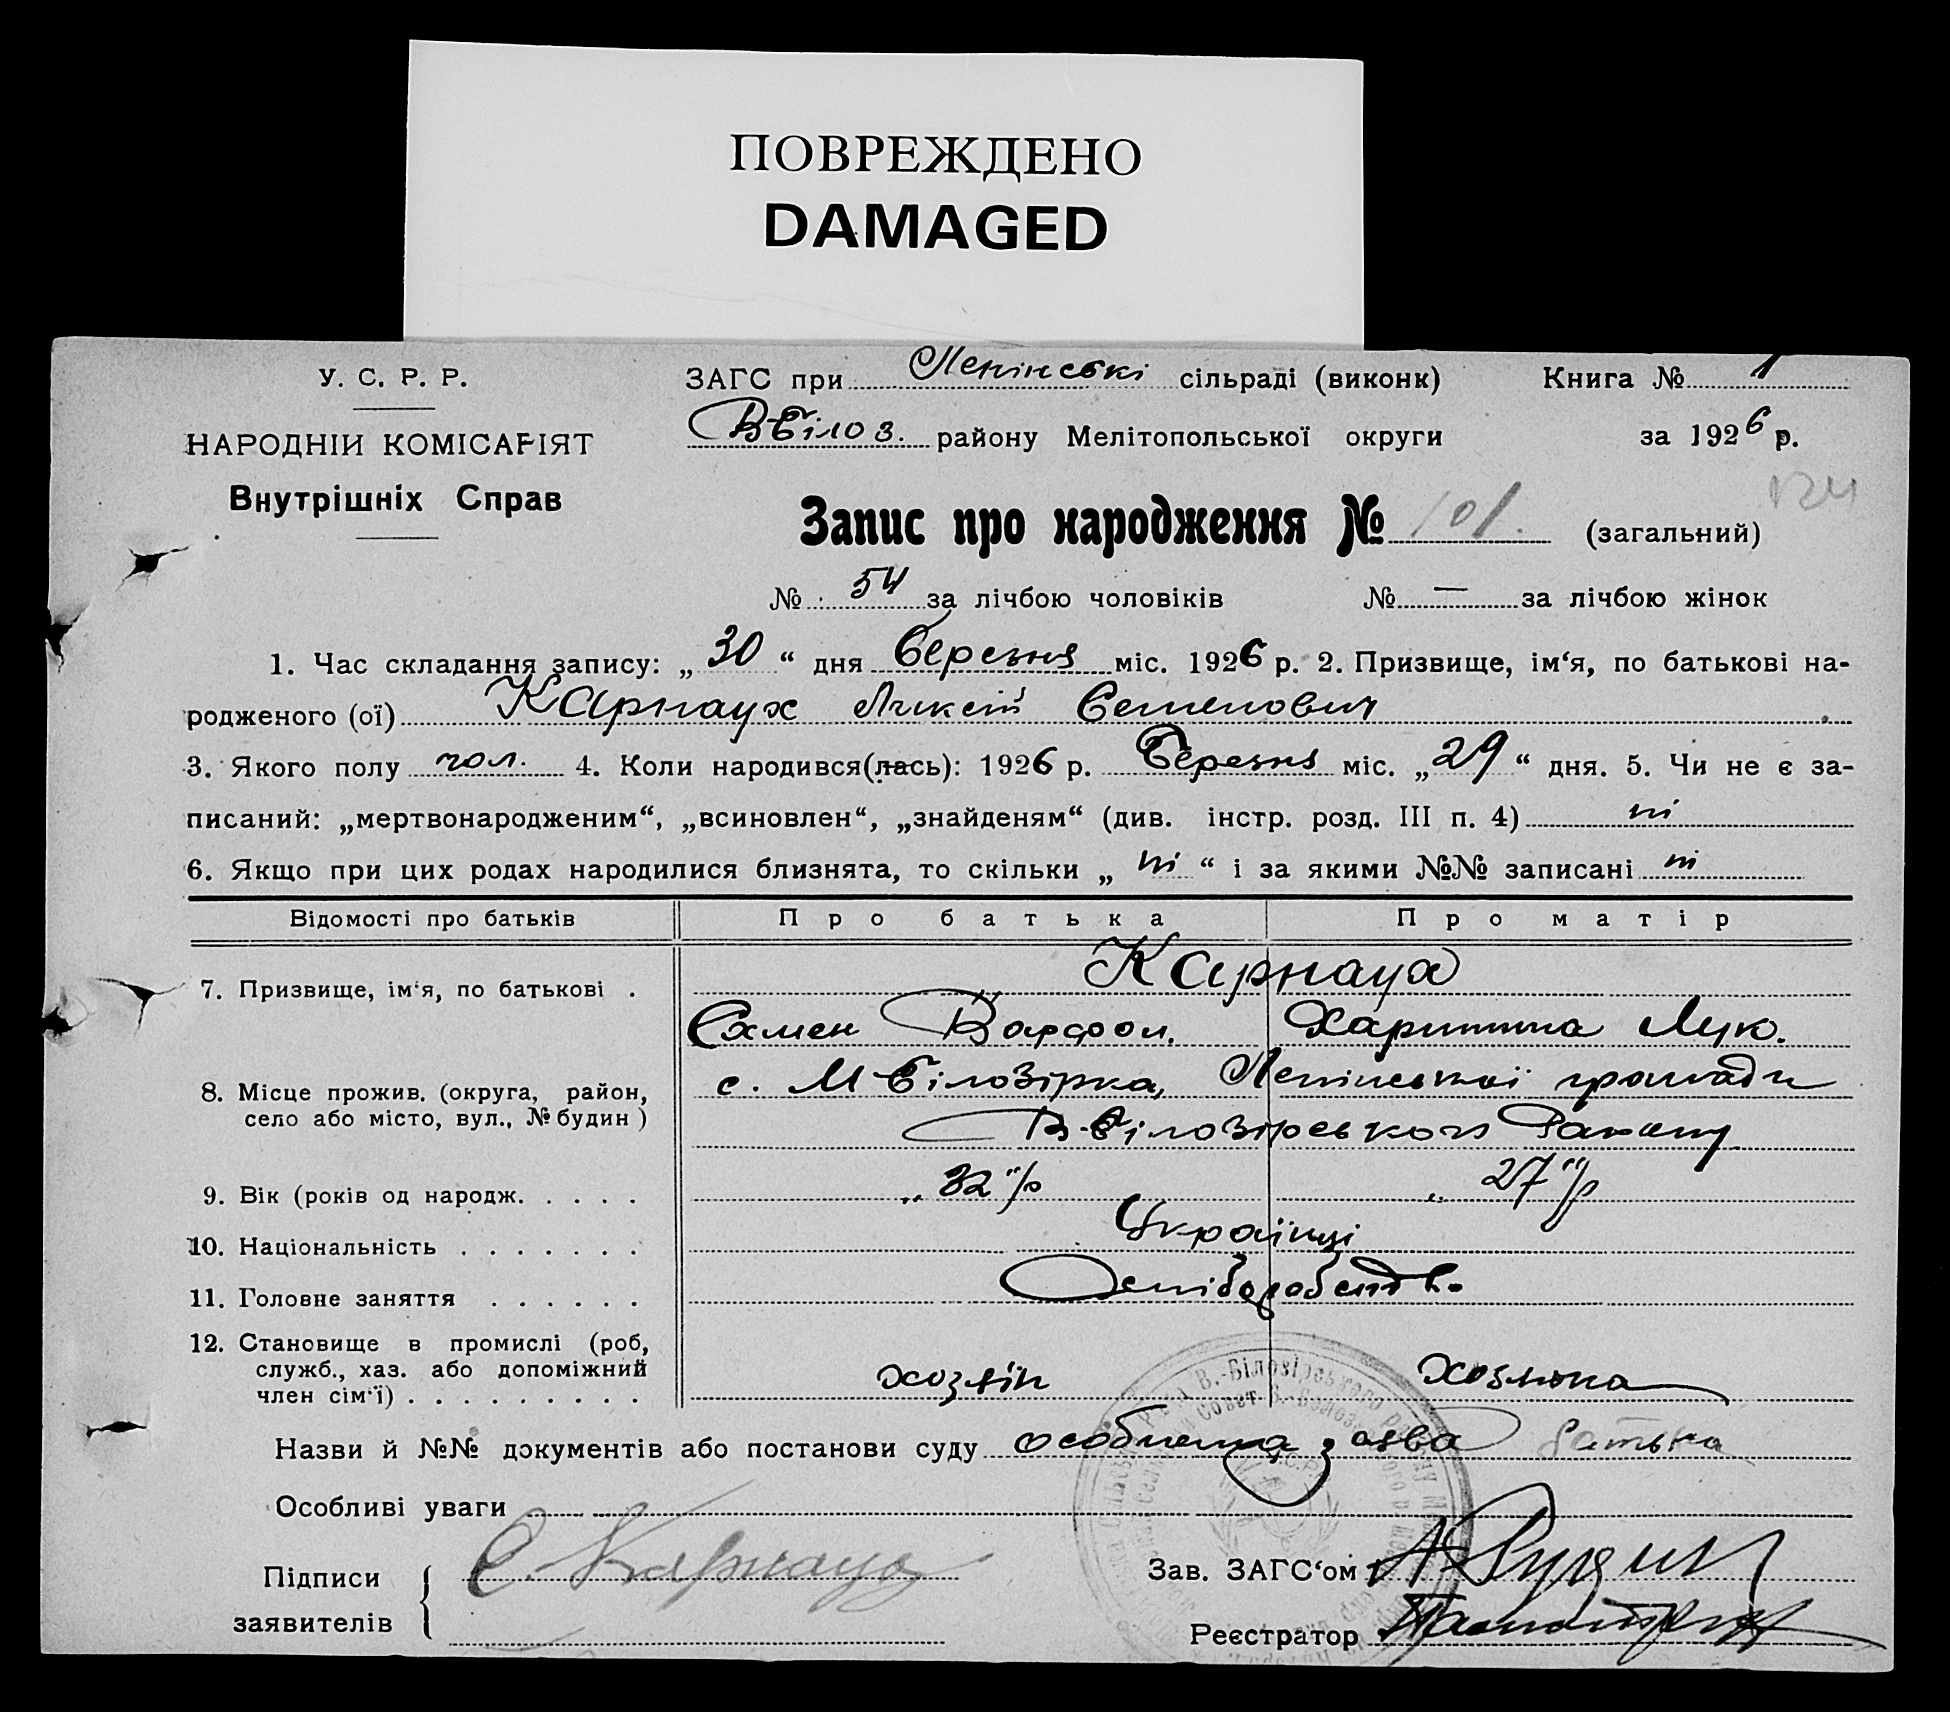 ПОВРЕЖДЕНО
DAMAGED
У. С. Р. Р.
НАРОДНІИ КОМІСАРІЯТ
Внутрішніх Справ
ЗАГС при Ленінські сільраді (виконк) Книга № 1
В-Білоз. району Мелітопольської округи за 1926 р.
Запис про народження № 101. (загальний)
№ 54 за лічбою чоловіків № — за лічбою жінок
1. Час складання запису: „ 30 “ дня березня міс. 1926 р. 2. Призвище, ім‘я, по батькові на-
родженого (ої) Карнаух Семенович
3. Якого полу чол. 4. Коли народився(лась): 1926 р. Березня міс. „ 29 “ дня. 5. Чи не є за-
писаний: „мертвонародженим“, „всиновлен“, „знайденям“ (див. інстр. розд. III п. 4) ні
6. Якщо при цих родах народилися близнята, то скільки „ ні “ і за якими №№ записані ні
Відомості про батьків Про батька Про матір
7. Призвище, ім‘я, по батькові . Карнаух
Варфол. Харитина Лук.
8. Місце прожив. (округа, район,
село або місто, вул., № будин )
с. М-Білозірка, Ленінської громади
В-Білозірського
9. Вік (років од народж. . . . . „ 32 “ р „ 27 “ р
10. Національність . . . . . . . Українці
11. Головне заняття . . . . . .
12. Становище в промислі (роб,
служб., хаз. або допоміжний
член сім‘ї) . . . . . . . . . хозяїн хозяйка
Назви й №№ документів або постанови суду особиста заява батька
Особливі уваги
Підписи
заявителів
С. Карнаух
Зав. ЗАГС‘ом
Реєстратор